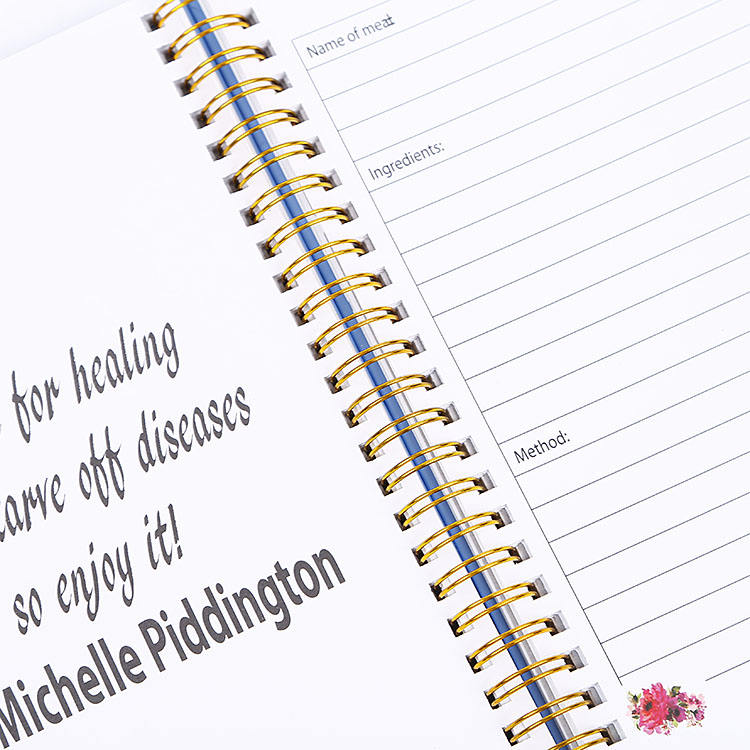 for healing
starve off diseases
so enjoy it!
Michelle Piddington
Name of meat
Ingredients:
Method: